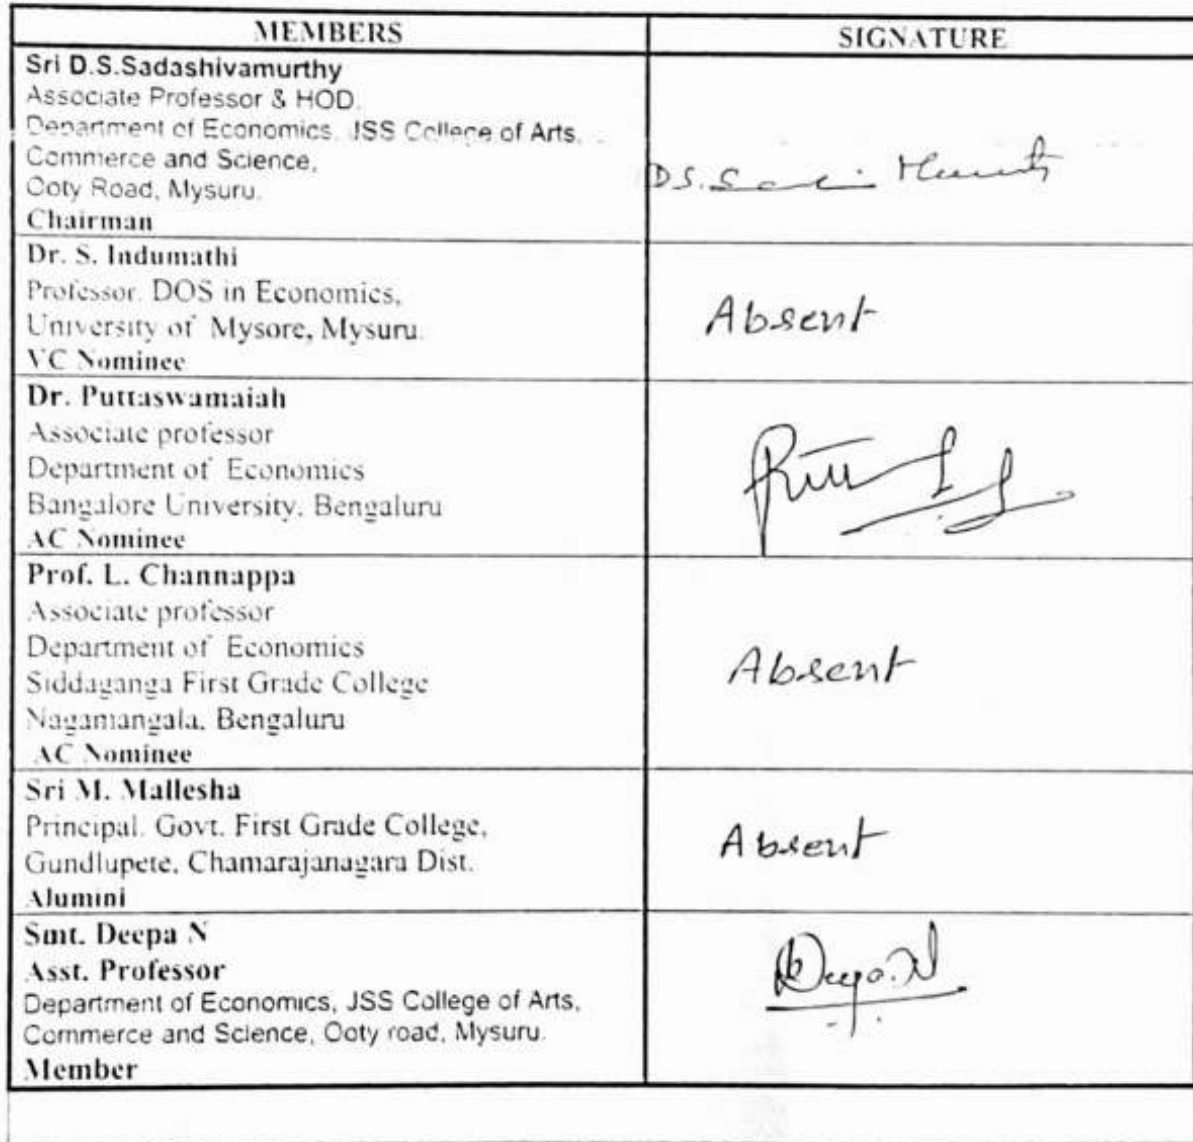 MEMBERS SIGNATURE
Sri D.S.Sadashivamurthy
Associate Professor & HOD.
Department of Economics, JSS College of Arts,
Commerce and Science,
Ooty Road, Mysuru.
Chairman
D S.
Dr. S. Indumathi
Professor. DOS in Economics,
University of Mysore, Mysuru.
VC Nominee
Absent
Dr. Puttaswamaiah
Associate professor
Department of Economics
Bangalore University, Bengaluru
AC Nominee
Prof. L. Channappa
Associate professor
Department of Economics
Siddaganga First Grade College
Nagamangala, Bengaluru
AC Nominee
Absent
Sri M. Mallesha
Principal. Govt. First Grade College,
Gundlupete, Chamarajanagara Dist.
Alumini
Absent
Smt. Deepa N
Asst. Professor
Department of Economics, JSS College of Arts,
Commerce and Science, Ooty road, Mysuru.
Member
Deepa.N